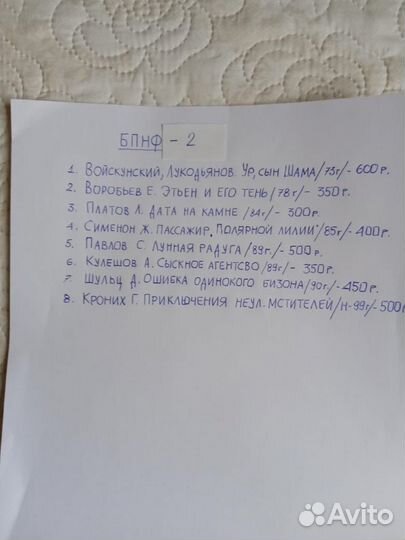 БПНФ - 2
1. Войскунский, Лукодьянов. Ур, сын Шама/75г/- 600р.
2. Воробьев Е. Этьен и его тень/78г/- 350р.
3. Платов Л. Дата на камне /84г/- 300р.
4. Сименон Ж. Пассажир „Полярной лилии"/85г/- 400р.
5. Павлов С. Лунная радуга /89г/- 500р.
6. Кулешов А. Сыскное агентсво /89г/- 350р.
7. Шульц Д. Ошибка одинокого бизона/90г/- 450р.
8. Кроних Г. Приключения неул. мстителей/н-99г/- 500р
Avito